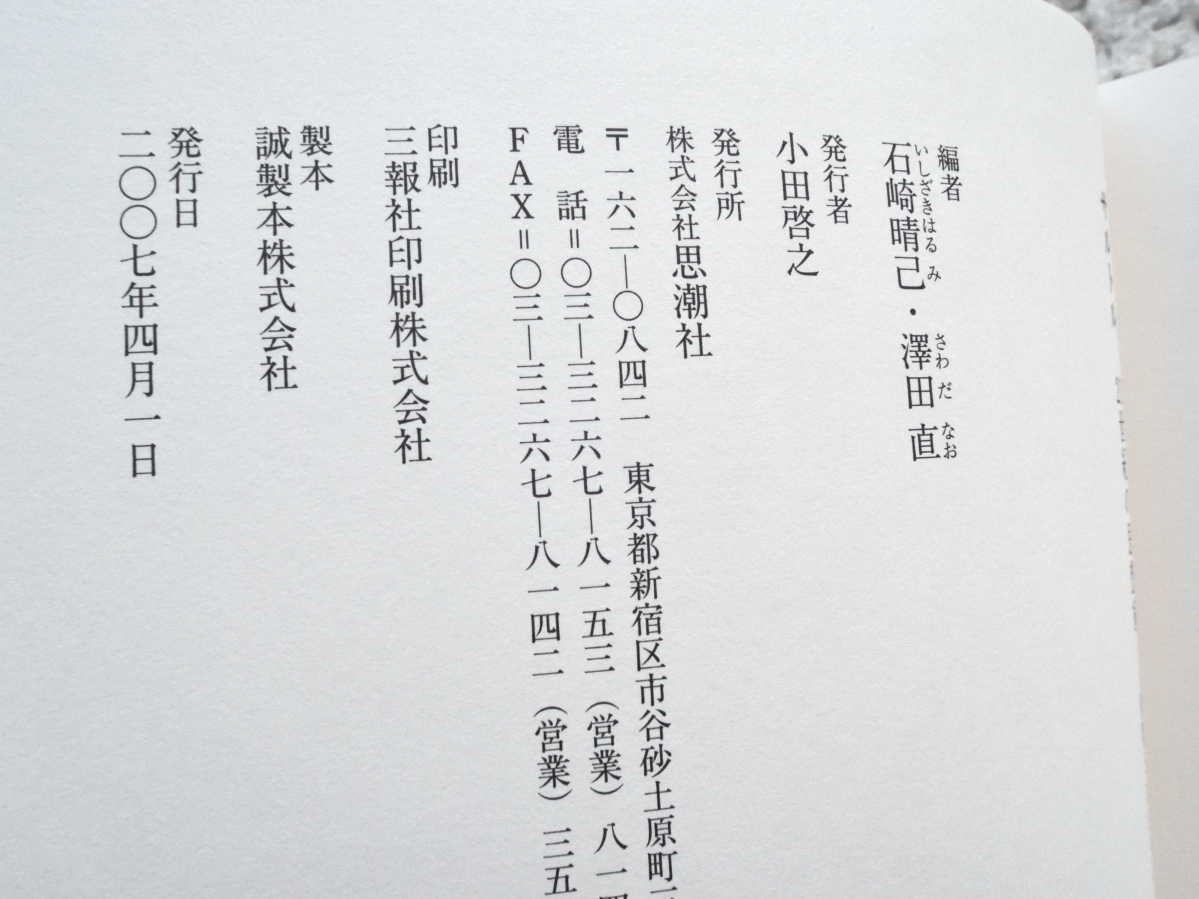 編者
石崎晴己・澤田直
いしざきはるみ さわだ なお
発行者
小田啓之
発行所
株式会社思潮社
〒一六二―〇八四二 東京都新宿区市谷砂土原町
電 話＝〇三―三二六七―八一五三（営業）八一
ＦＡＸ＝〇三―三二六七―八一四二（営業）三五
印刷
三報社印刷株式会社
製本
誠製本株式会社
発行日
二〇〇七年四月一日